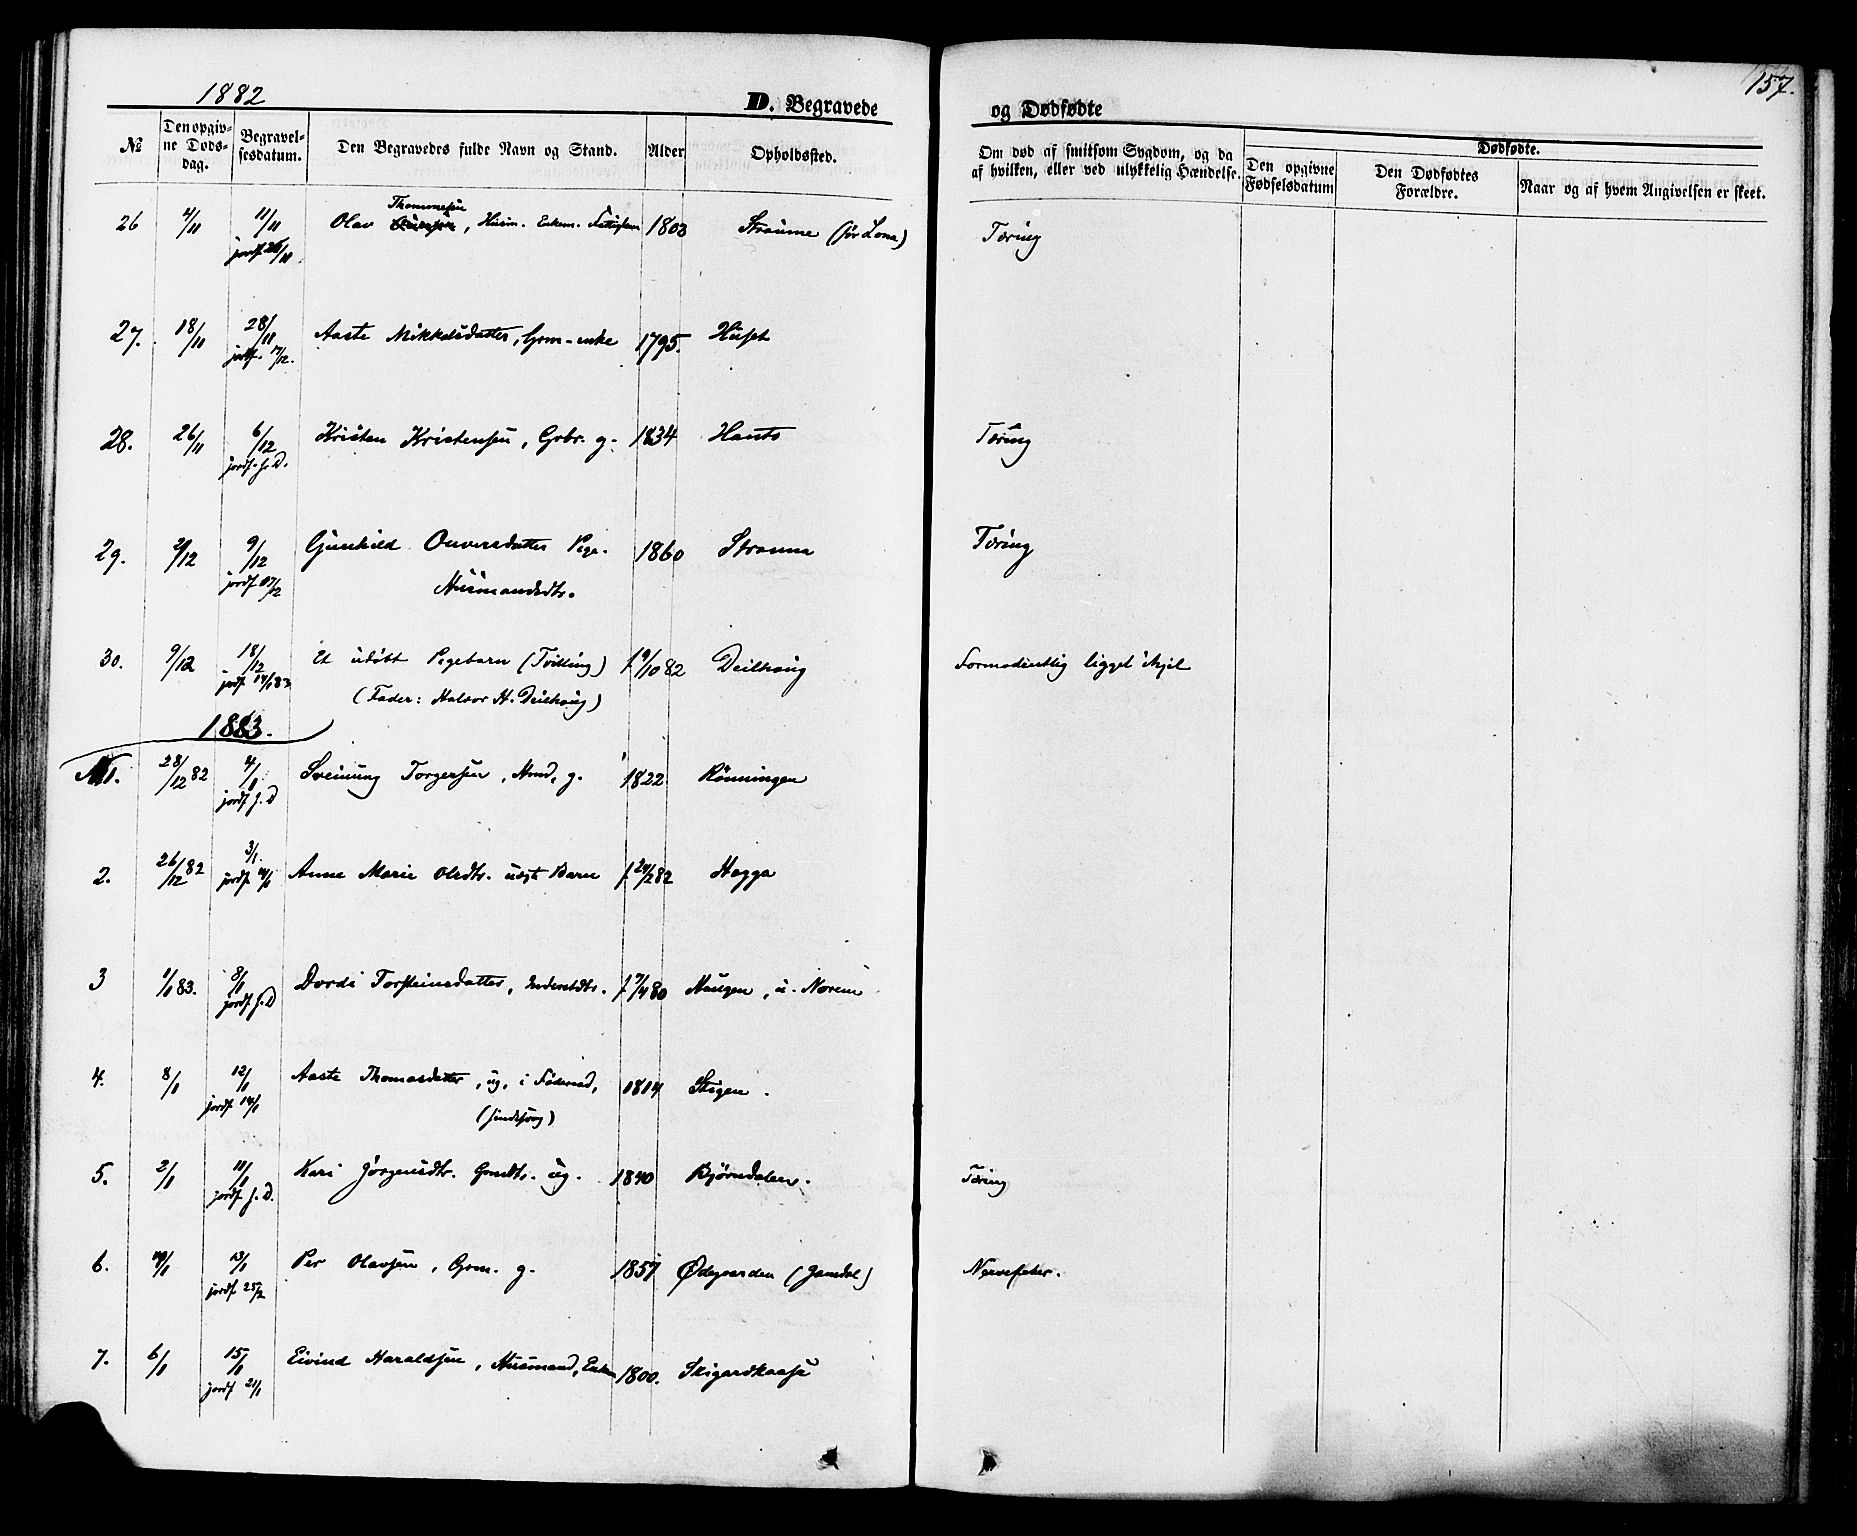 157.
1882
D. Begravede og Dødfødte
№ Den opgivne Døds-dag. Begravelsesdatum. Den Begravedes fulde Navn og Stand. Alder Opholdssted. Om død af smitsom Sygdom, og da af hvilken, eller ved ulykkelig Hændelse. Dødfødte.
Den opgivne Fødselsdatum Den Dødfødtes Forældre. Naar og af hvem Angivelsen er skeet.
Thommesen
26 4/11 11/11 Olav , Husm. Enkem. 1803 Straume (før Lona) Tæring
jordf. 26/11
27. 18/11 28/11 Aaste Mikkelsdatter, Grm-enke 1795. Huset
jordf. 17/12.
28. 26/11 6/12 Kristen Kristensen, Grbr. g. 1834 Hanto Tæring
jordf. s. D.
29. 2/12 9/12 Gunhild Ouversdatter Pige. 1860 Stranna Tæring
jordf. 17/12 Husmandsdtr.
30. 9/12 18/12 Et udøbt Pigebarn (Tvilling) f. 9/10 82 Deilhoug Formodentlig ligget ihjel
jordf. 14/1 83. (Fader: Halvor H. Deilhoug)
1883.
N1. 28/12 82 4/1 Sveinung Torgersen, Hmd, g. 1822 Rönningen
jordf. s. D
2. 26/12 82 3/1. Anne Marie Olsdtr. uægt. Barn f. 24/2 82 Hagga
jordf. 14/1
3 1/1 83. 8/1 Dordi Torsteinsdatter, Inderstdtr. f. 7/4 80 Haugen, u. Noreim
jordf. s. D
4. 8/1 12/1 Aaste Thomasdatter, ug. i Föderaad, 1814 Stigen.
jordf. 14/1 (sindssvag)
5. 2/1 11/1 Kari Jörgensdtr. Grmdtr. ug. 1840 Bjørndalen. Tæring
jordf. s. D.
6. 10/1 13/1 Per Olavsen, Grm. g. 1857 Ødegaarden (Jamdal) Nervefeber.
jordf. 25/2
7. 6/1 15/1 Eivind Haraldsen, Husmand, Enkem 1800. Skigardkaase
jordf. 21/1